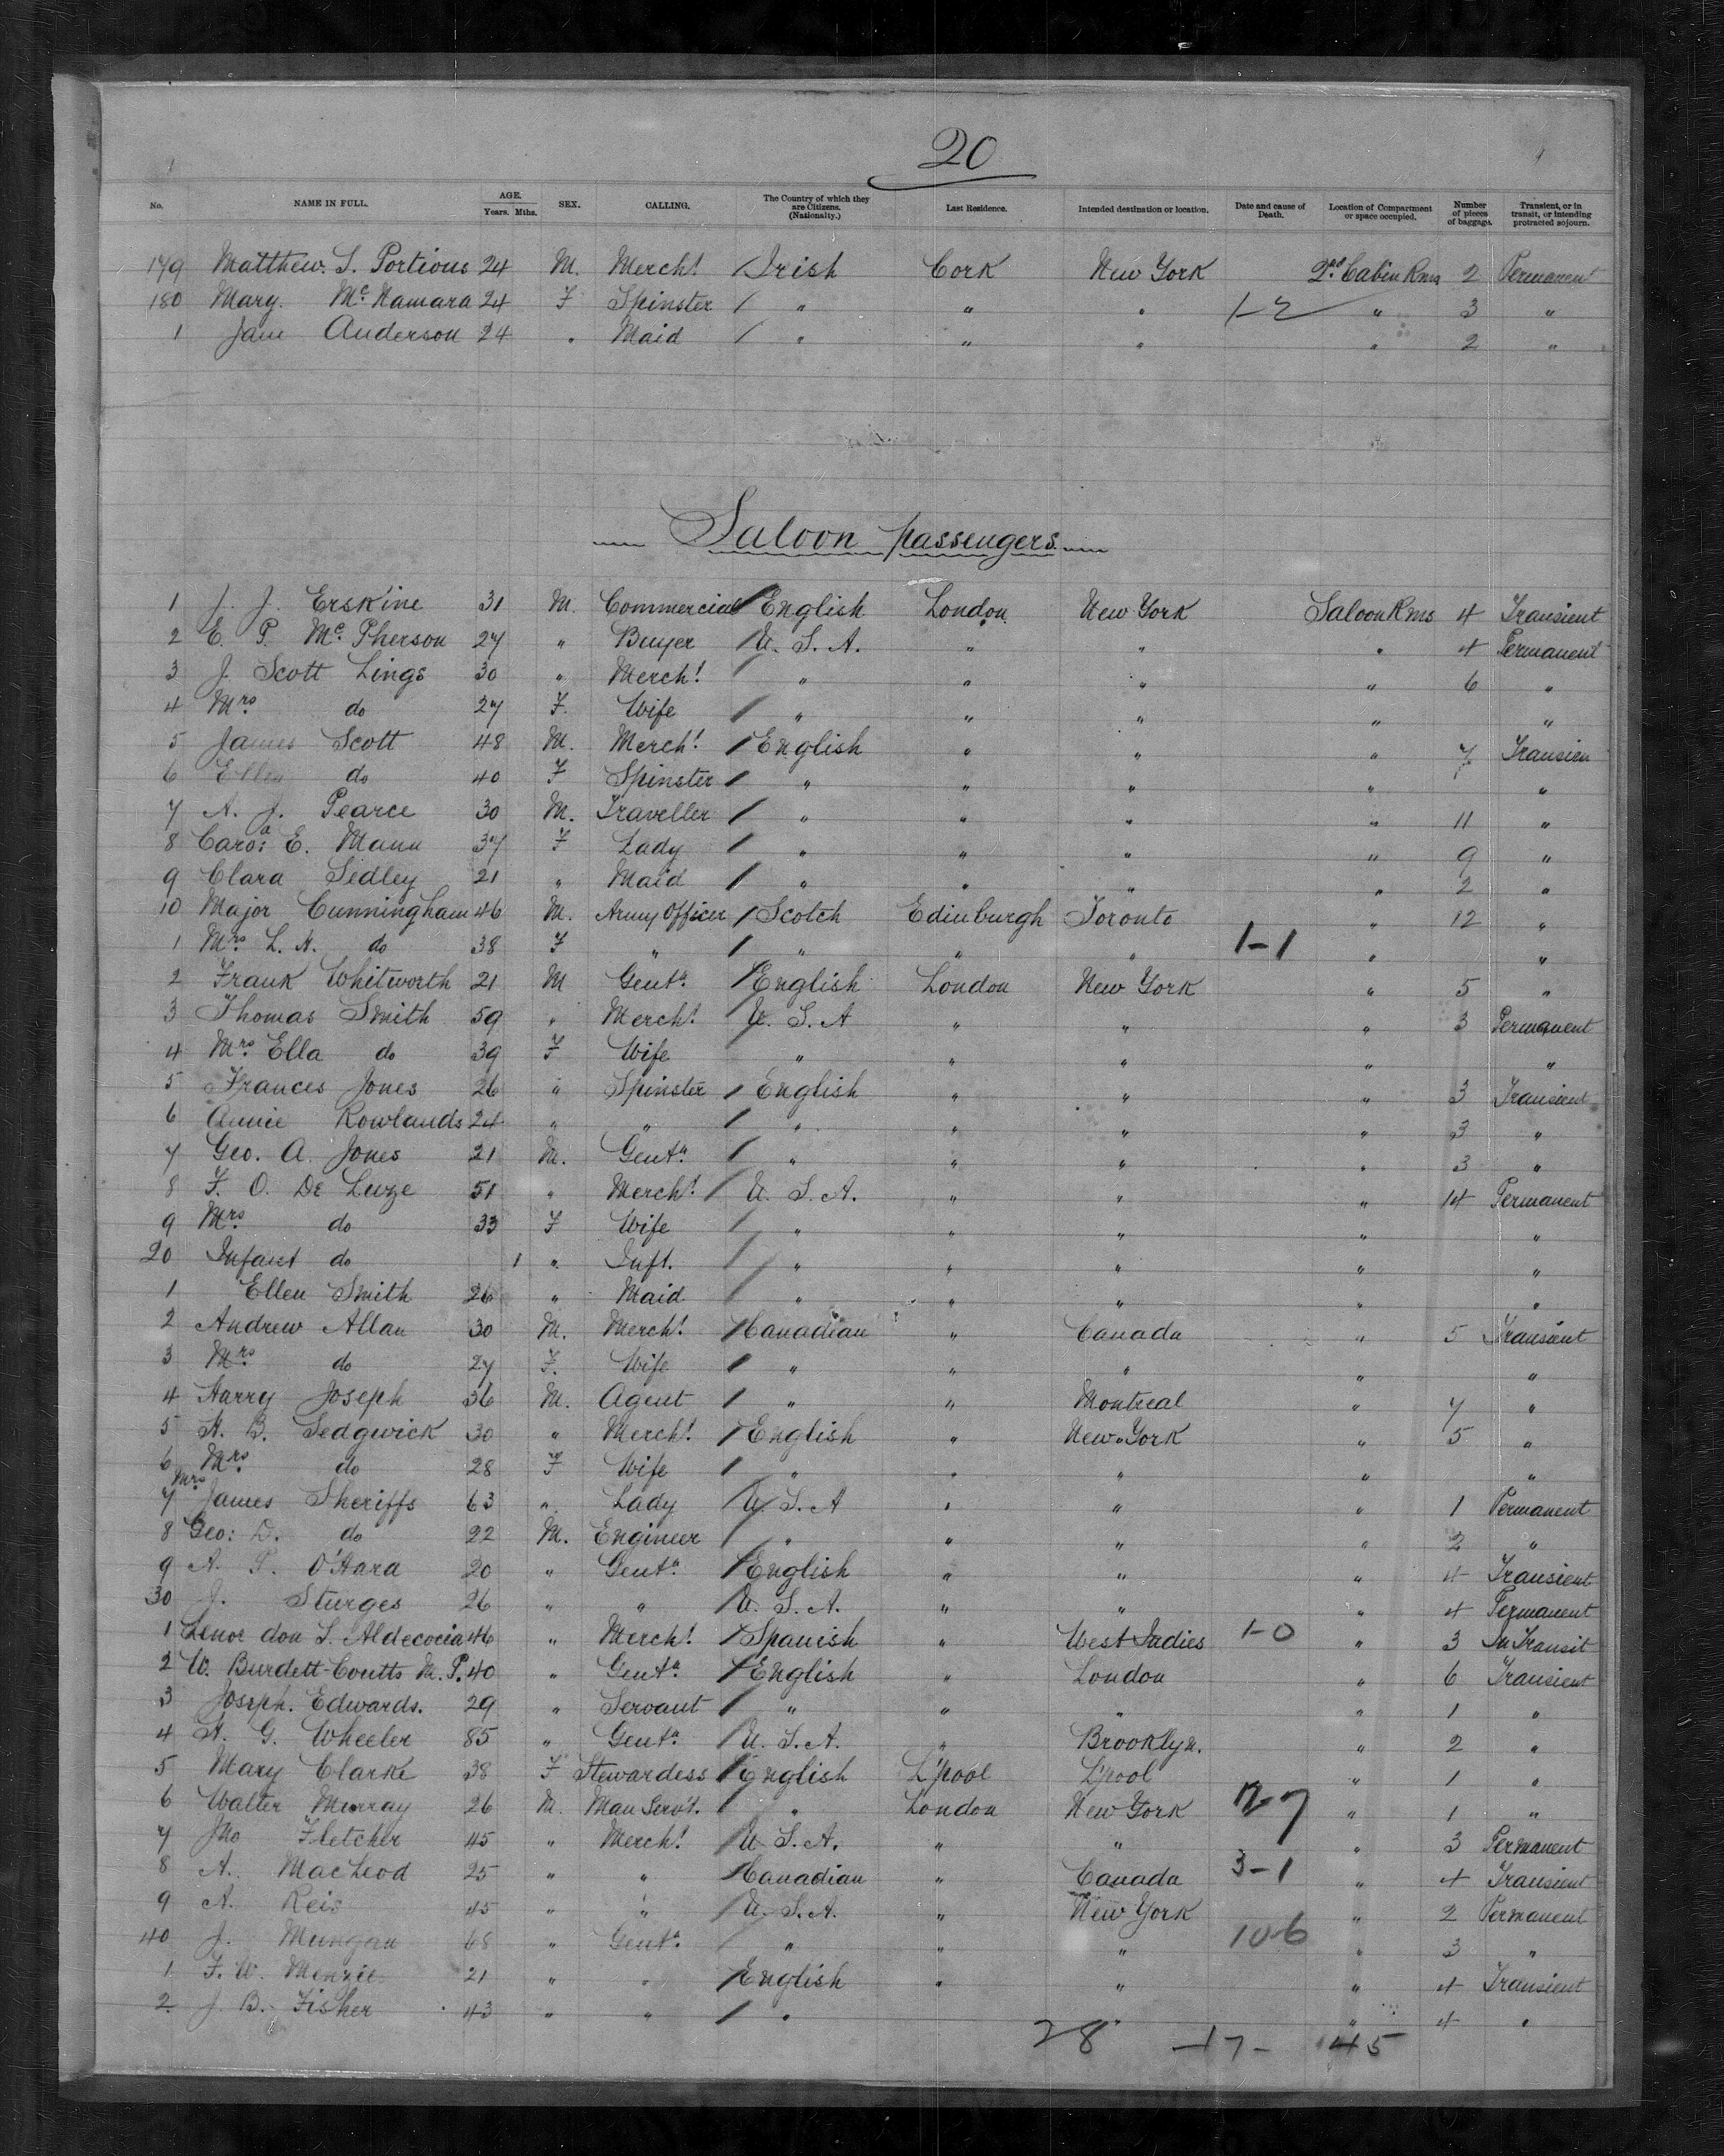 20
No. NAME IN FULL. AGE. Years. Mths. SEX. CALLING. The Country of which they are Citizens. (Nationality.) Last Residence. Intended destination or location. Date and cause of Death. Location of Compartment or space occupied. Number of pieces of baggage. Transient, or in transit, or intending protracted sojourn.
179 Matthew. S. Portious 24 M. Mercht. / Irish Cork New York 2nd Cabin Rms 2 Permanent
180 Mary. Mc. Namara 24 F Spinster / " " " 1-2 " 3 "
1 Jane Anderson 24 " Maid / " " " " 2 "
Saloon passengers
1 J. J. Erskine 31 M. Commercial / English London New York Saloon Rms 4 Transient
2 E. P. Mc. Pherson 27 " Buyer / U. S. A. " " " 4 Permanent
3 J. Scott Lings 30 " Mercht. / " " " " 6 "
4 Mrs. do 27 F. Wife / " " " " "
5 James Scott 48 M. Mercht. / English " " " 7 Transien
6 Ellen do 40 F Spinster / " " " " "
7 A. J. Pearce 30 M. Traveller / " " " " 11 "
8 Caroa: E. Mann 37 F Lady / " " " " 9 "
9 Clara Sedley 21 " Maid / " " " " 2 "
10 Major Cunningham 46 M. Army Officer / Scotch Edinburgh Toronto " 12 "
1 Mrs. L. H. do 38 F " / " " " 1-1 " "
2 Frank Whitworth 21 M Gentn. / English London New York " 5 "
3 Thomas Smith 59 " Mercht. / U. S. A " " " 3 Permanent
4 Mrs. Ella do 39 F Wife " " " " "
5 Frances Jones 26 " Spinster / English " " " 3 Transient
6 Annie Rowlands 24 " " / " " " " 3 "
7 Geo. A. Jones 21 M. Gentn. / " " " " 3 "
8 F. O. De Luze 51 " Mercht. / U. S. A. " " " 14 Permanent
9 Mrs. do 33 F Wife / " " " " "
20 Infant do 1 " Inft. / " " " " "
1 Ellen Smith 26 " Maid / " " " " "
2 Andrew Allan 30 M. Mercht. / Canadian " Canada " 5 Transient
3 Mrs. do 27 F. Wife / " " " " "
4 Harry Joseph 36 M. Agent / " " Montreal " 7 "
5 H. B. Sedgwick 30 " Mercht. / English " New York " 5 "
6 Mrs. do 28 F Wife / " " " " "
7 Mrs James Sheriffs 63 " Lady / U. S. A " " " 1 Permanent
8 Geo: D. do 22 M. Engineer / " " " " 2 "
9 A. P. O'Hara 20 " Gentn. / English " " " 4 Transient
30 J. Sturges 26 " " / U. S. A. " " " 4 Permanent
1 Senor don S. Aldecocia 46 " Mercht. / Spanish " West Indies 1-0 " 3 In Transit
2 W. Burdett-Coutts M. P. 40 " Gentn. / English " London " 6 Transient
3 Joseph. Edwards. 29 " Servant / " " " " 1 "
4 H. G. Wheeler 85 " Gentn. / U. S. A. " Brooklyn. " 2 "
5 Mary Clarke 38 F Stewardess / English L'pool L'pool " 1 "
6 Walter Murray 26 M. Man Servt. / " London New York 12-7 " 1 "
7 Jno Fletcher 45 " Mercht. / U. S. A. " " " 3 Permanent
8 A. MacLeod 25 " " / Canadian " Canada 3-1 " 4 Transient
9 A. Reis 45 " " / U. S. A. " New York " 2 Permanent
40 J. Mungan 68 " Gentn. / " " " 10-6 " 3 "
1 F. W. Menzie 21 " " / English " " " 4 Transient
2 J. B. Fisher 43 " " / " " " 4 "
28 -17- 45